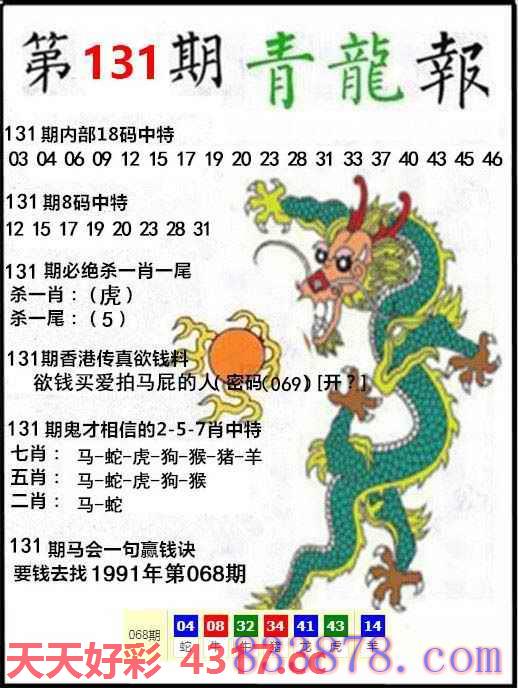 第131期青龍報
131期内部18码中特
03 04 06 09 12 15 17 19 20 23 28 31 33 37 40 43 45 46
131期8码中特
12 15 17 19 20 23 28 31
131期必绝杀一肖一尾
杀一肖：（虎）
杀一尾：（5）
131期香港传真欲钱料
欲钱买爱拍马屁的人（密码(069)[开？]
131期鬼才相信的2-5-7肖中特
七肖： 马-蛇-虎-狗-猴-猪-羊
五肖： 马-蛇-虎-狗-猴
二肖： 马-蛇
131期马会一句赢钱诀
要钱去找1991年第068期
068期 04 08 32 34 41 43 14
蛇 牛 牛 猪 龙 虎 羊
天天好彩 4317.cc
878.com